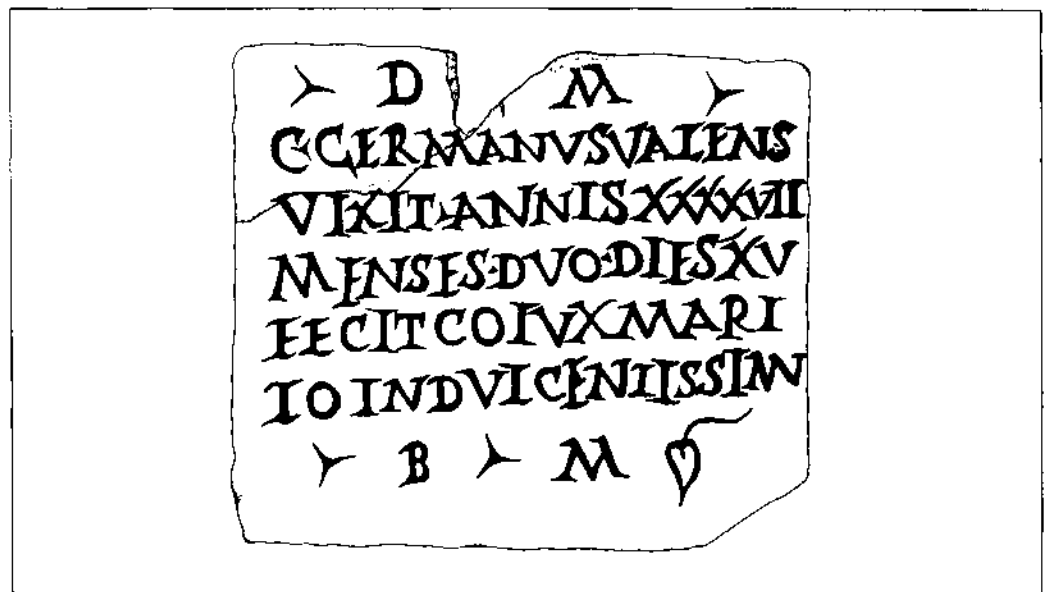 D M
C·GERMANVSVALENS
VIXIT·ANNIS XXXXVII
MENSES·DVO·DIES XV
FECIT COIVX MARI
IO INDVICENIISSIM
B M